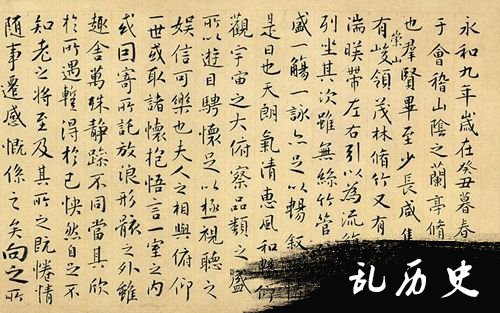 永和九年歲在癸丑暮春
于會稽山陰之蘭亭脩
也羣賢畢至少長咸集
有崇山峻領茂林脩竹又有
湍暎帶左右引以為流
列坐其次雖無絲竹管
盛一觴一詠亦足以暢叙
是日也天朗氣清惠風和暢仰
觀宇宙之大俯察品類之盛
所以遊目騁懷足以極視聽之
娛信可樂也夫人之相與俯仰
一世或取諸懷抱悟言一室之內
或因寄所託放浪形骸之外雖
趣舍萬殊静躁不同當其欣
於所遇蹔得於己怏然自足不
知老之將至及其所之既惓情
隨事遷感慨係之矣向之所
乱历史